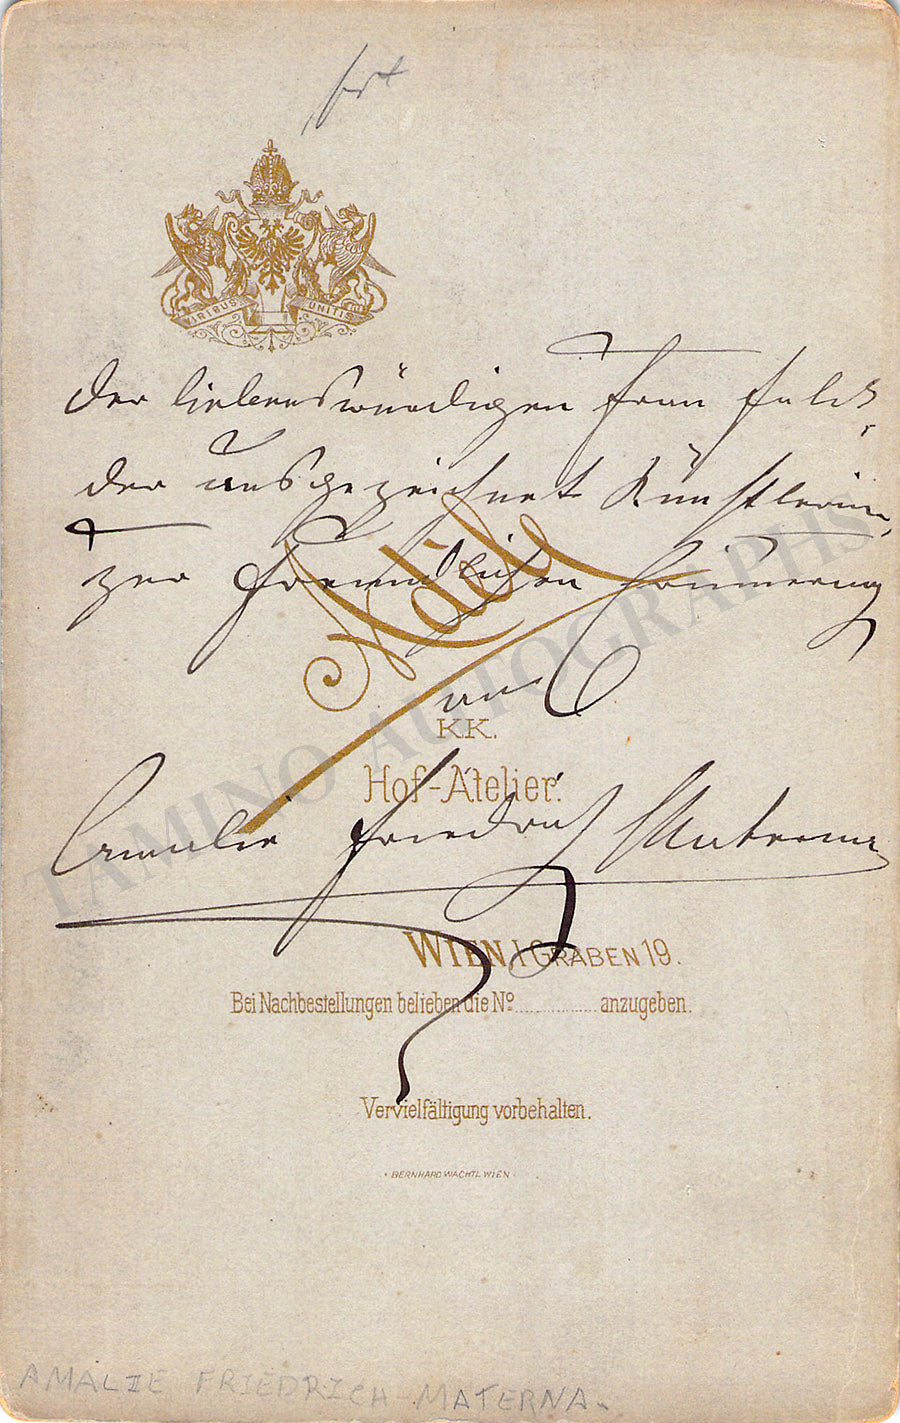 VIRIBUS UNITIS
Der liebenswürdigen Frau
der ausgezeichnet Künstlerin,
zur freundlichen Erinnerung
an
Adèle
K.K.
Hof-Atelier.
Amalie Friedrich Materna
WIEN, I GRABEN 19.
Bei Nachbestellungen belieben die Nº ................ anzugeben.
Vervielfältigung vorbehalten.
BERNHARD WACHTL WIEN
AMALIE FRIEDRICH-MATERNA.
TAMINO AUTOGRAPHS